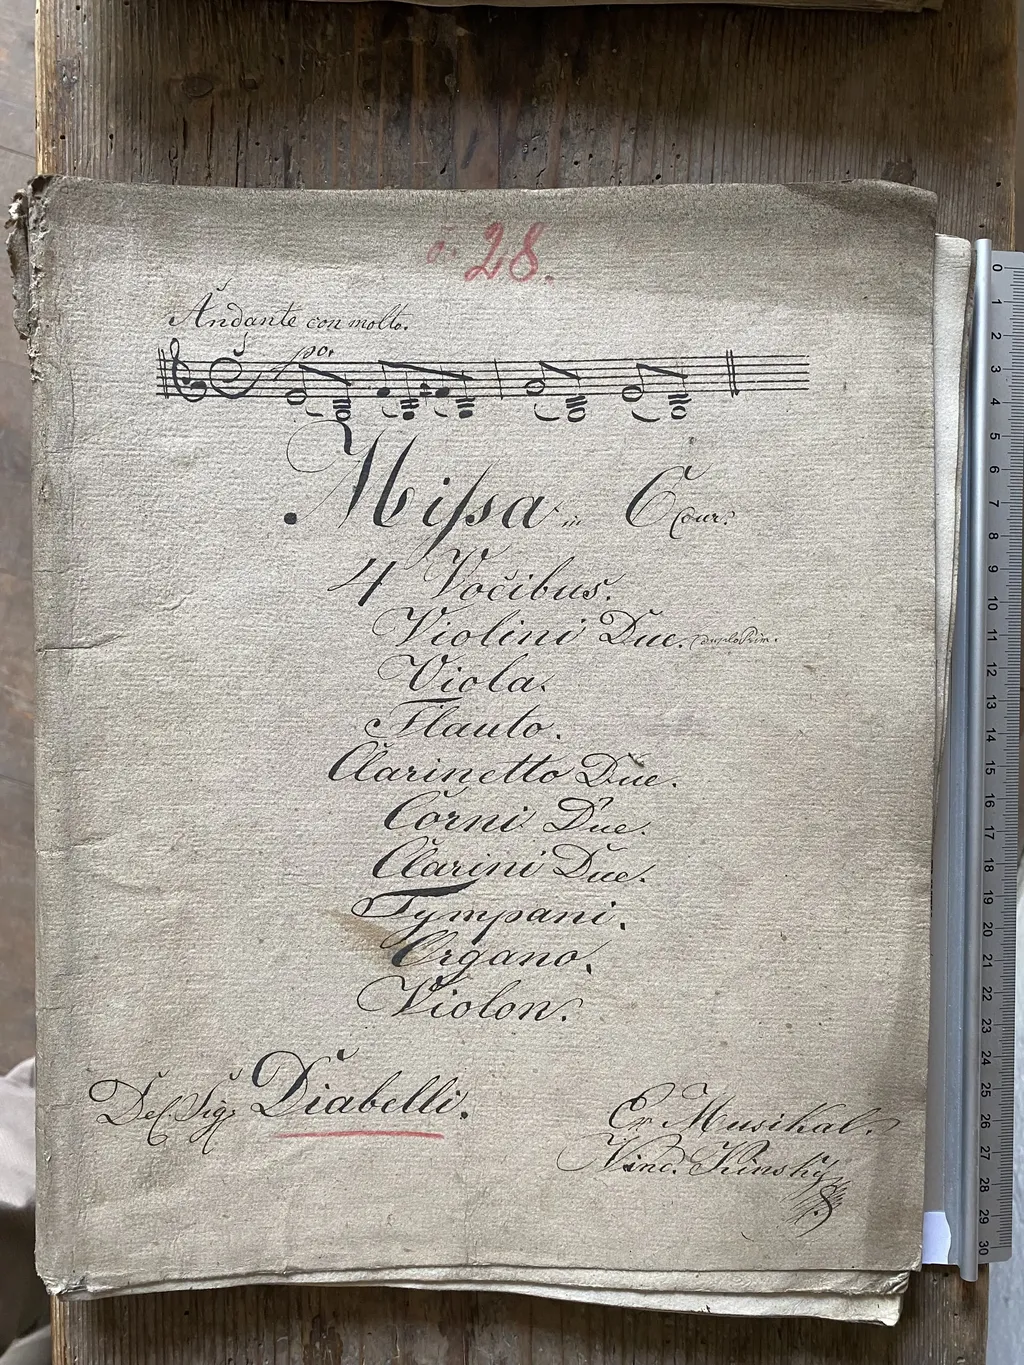 č. 28.
Andante con molto.
po.
Missa in C
4 Vocibus.
Violini Due.
Viola.
Flauto.
Clarinetto Due.
Corni Due.
Clarini Due.
Tympani.
Organo.
Violon.
Del Sig. Diabelli.
Musikal.
Vinc. Kinský
0 1 2 3 4 5 6 7 8 9 10 11 12 13 14 15 16 17 18 19 20 21 22 23 24 25 26 27 28 29 30